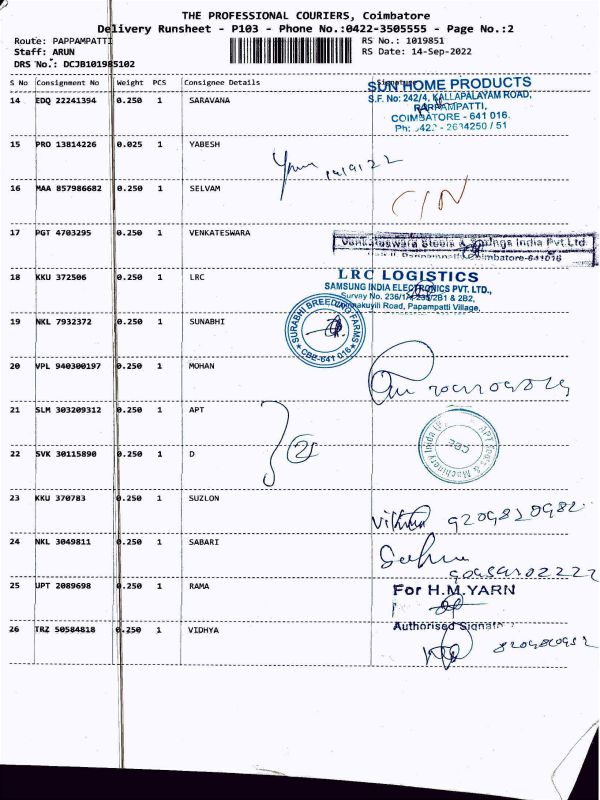 THE PROFESSIONAL COURIERS, Coimbatore
Delivery Runsheet - P103 - Phone No.:0422-3505555 - Page No.:2
Route: PAPPAMPATTI RS No.: 1019851
Staff: ARUN RS Date: 14-Sep-2022
DRS No.: DCJB101985102
S No Consignment No Weight PCS Consignee Details Signature
14 EDQ 22241394 0.250 1 SARAVANA
SUN HOME PRODUCTS
S.F. No: 242/4, KALLAPALAYAM ROAD,
PAPPAMPATTI,
COIMBATORE - 641 016.
Ph: 0422 - 2634250 / 51
15 PRO 13814226 0.025 1 YABESH
16 MAA 857986682 0.250 1 SELVAM
C/N
17 PGT 4703295 0.250 1 VENKATESWARA
Venkateswara Steels & Springs India Pvt.Ltd.
Coimbatore-641016
18 KKU 372506 0.250 1 LRC
LRC LOGISTICS
SAMSUNG INDIA ELECTRONICS PVT. LTD.,
Survey No. 236/1A, 235/2B1 & 2B2,
Road, Papampatti Village,
19 NKL 7932372 0.250 1 SUNABHI
SURABHI BREEDING FARMS
CBE-641 016
20 VPL 940300197 0.250 1 MOHAN
21 SLM 303209312 0.250 1 APT
2
APT & Machinery India
CBE
22 SVK 30115890 0.250 1 D
23 KKU 370783 0.250 1 SUZLON
9209820982
24 NKL 3049811 0.250 1 SABARI
25 UPT 2089698 0.250 1 RAMA
For H.M.YARN
Authorised
26 TRZ 50584818 0.250 1 VIDHYA